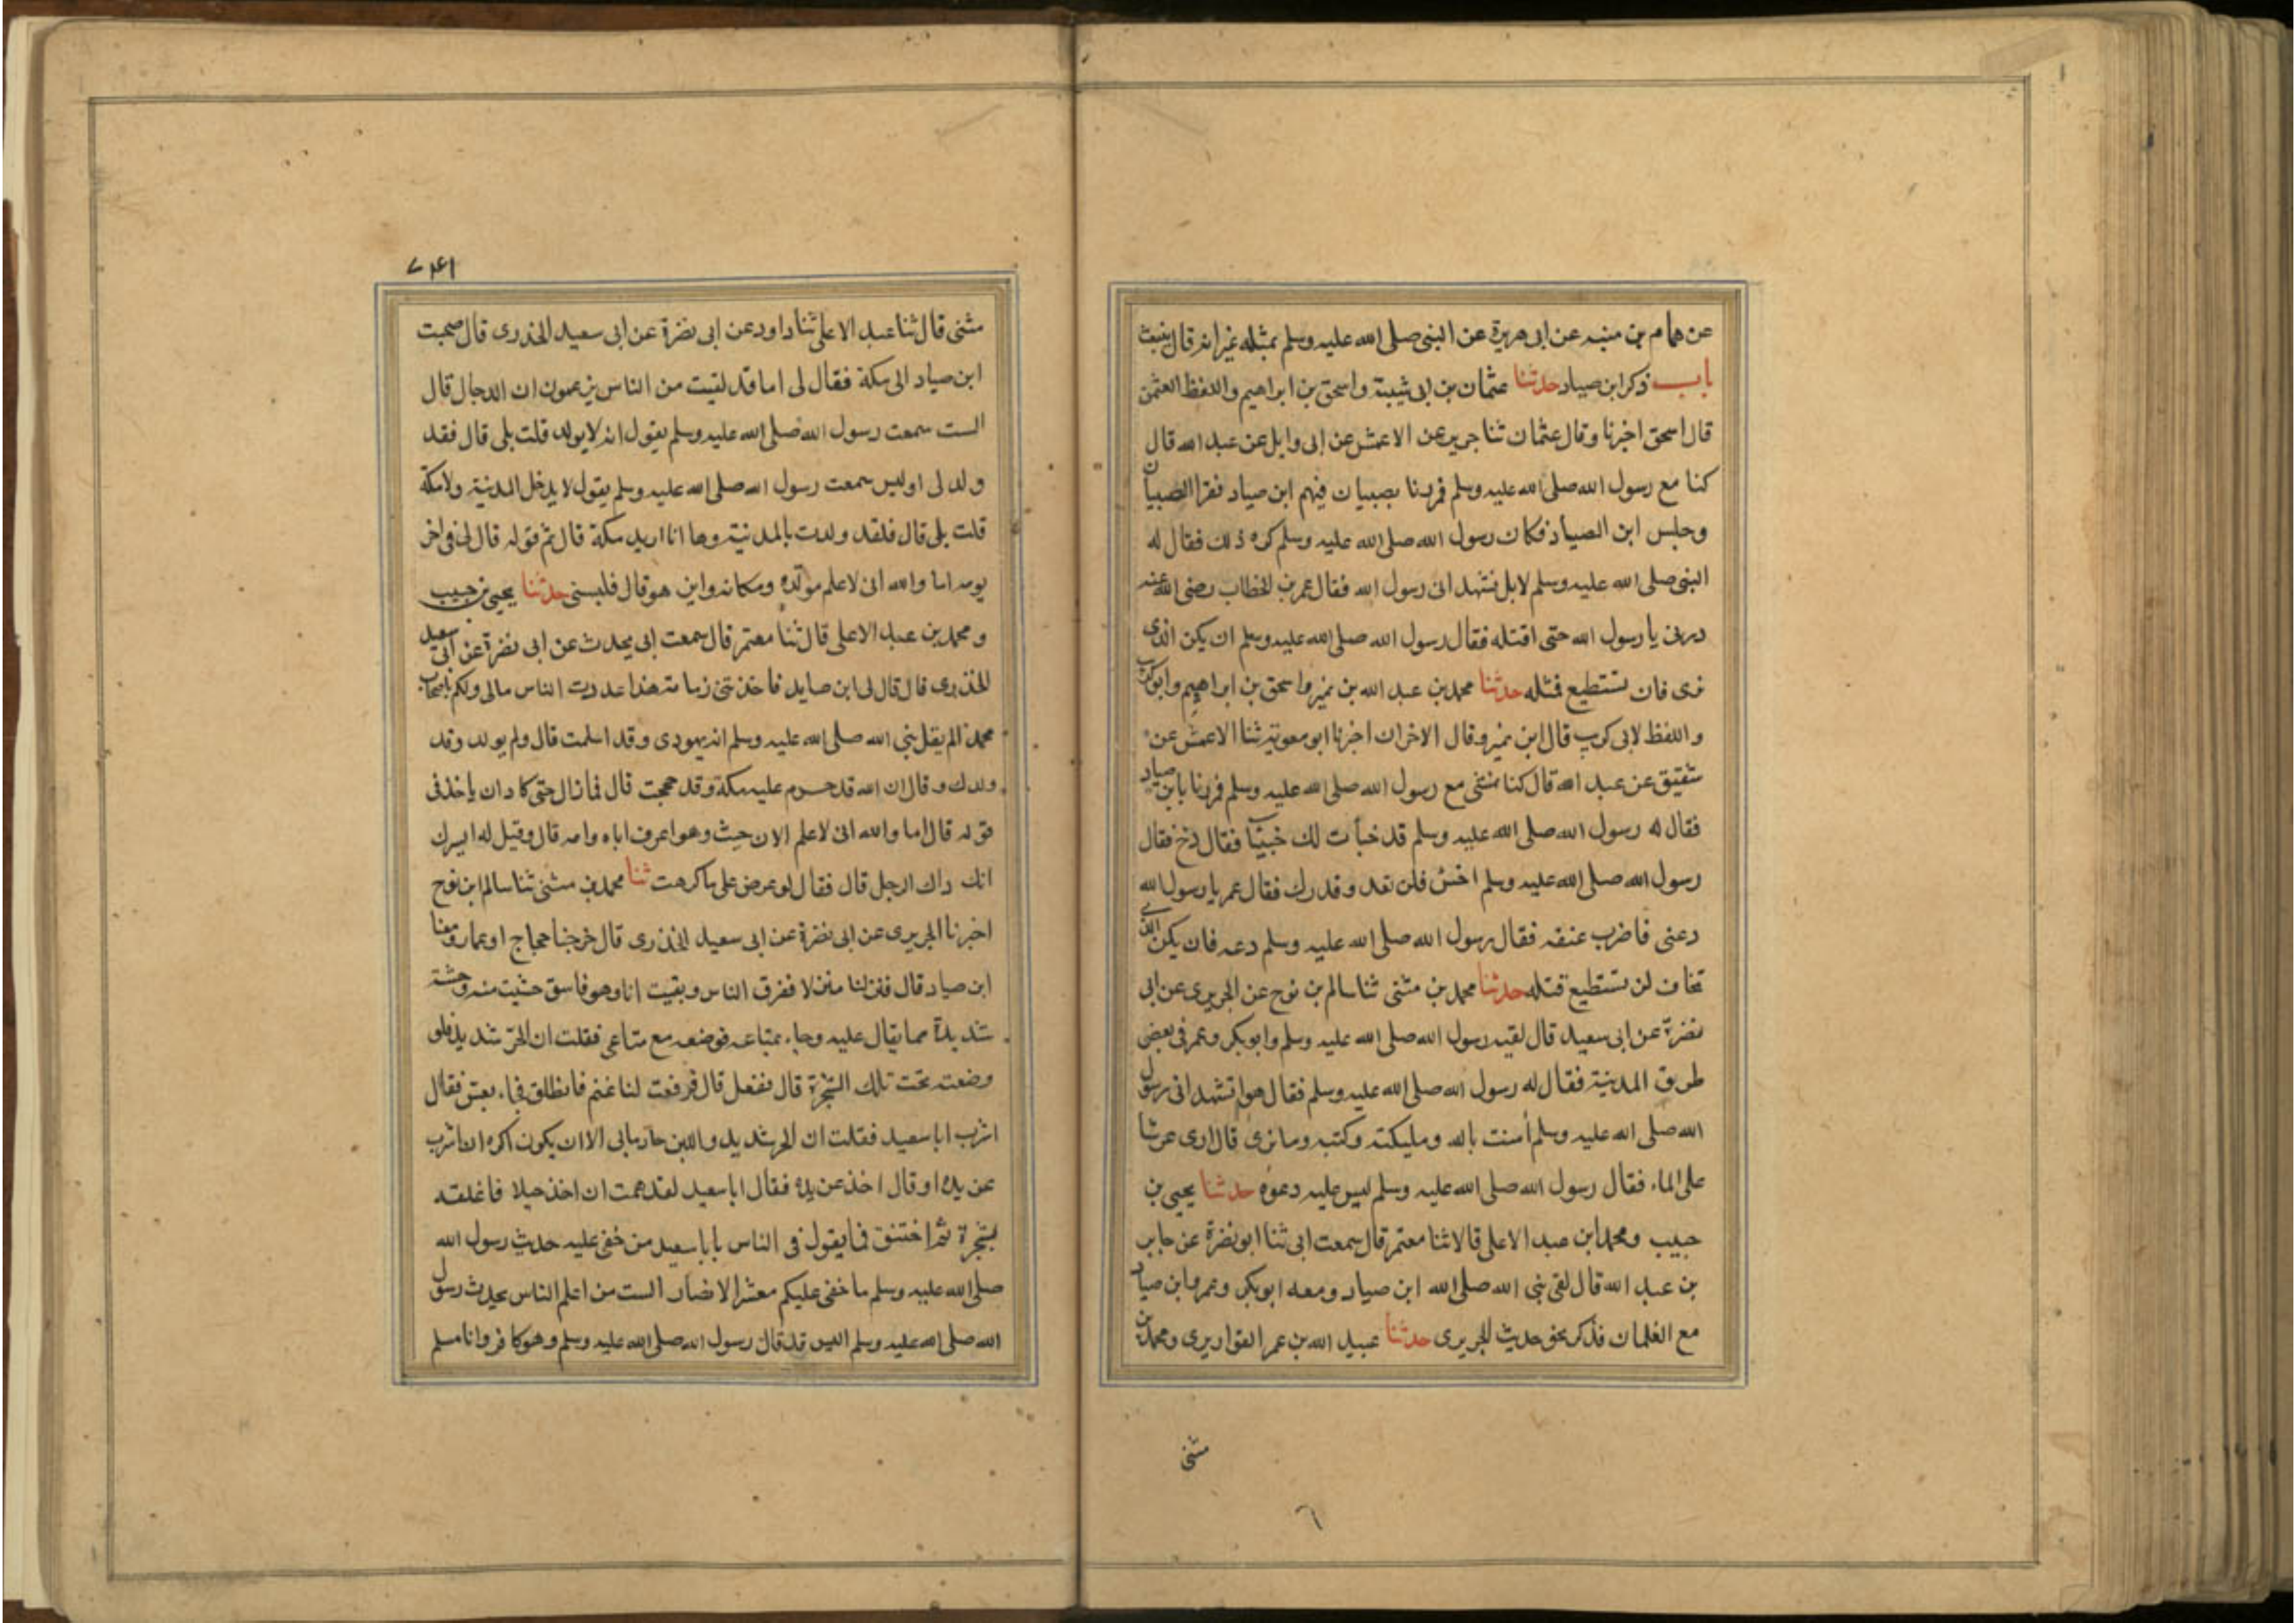 عن همام بن منبه عن ابى هريرة عن النبى صلى الله عليه وسلم بمثله غير انه قال ينبعث
باب ذكر ابن صياد حدثنا عثمان بن ابى شيبة واسحق بن ابراهيم واللفظ لعثمن
قال اسحق اخبرنا وقال عثمان ثنا جرير عن الاعمش عن ابى وايل عن عبد الله قال
كنا مع رسول الله صلى الله عليه وسلم فمررنا بصبيان فيهم ابن صياد ففر الصبيان
وجلس ابن الصياد فكان رسول الله صلى الله عليه وسلم كره ذلك فقال له
النبى صلى الله عليه وسلم لا بل تشهد انى رسول الله فقال عمر بن الخطاب رضى الله عنه
ذرنى يا رسول الله حتى اقتله فقال رسول الله صلى الله عليه وسلم ان يكن الذى
ترى فان تستطيع قتله حدثنا محمد بن عبد الله بن نمير واسحق بن ابراهيم وابو كريب
واللفظ لابى كريب قال ابن نمير وقال الاخران اخبرنا ابو معوية ثنا الاعمش عن
شقيق عن عبد الله قال كنا نمشى مع رسول الله صلى الله عليه وسلم فمررنا بابن صياد
فقال له رسول الله صلى الله عليه وسلم قد خبأت لك خبيّا فقال دخ فقال
رسول الله صلى الله عليه وسلم اخس فلن تعد وقدرك فقال عمر يا رسول الله
دعنى فاضرب عنقه فقال رسول الله صلى الله عليه وسلم دعه فان يكن الذى
تخاف لن تستطيع قتله حدثنا محمد بن مثنى ثنا سالم بن نوح عن الجريرى عن ابى
نضرة عن ابى سعيد قال لقيه رسول الله صلى الله عليه وسلم وابو بكر وعمر فى بعض
طرق المدينة فقال له رسول الله صلى الله عليه وسلم فقال هو اتشهد انى رسول
الله صلى الله عليه وسلم أمنت بالله ومليكته وكتبه وما ترى قال ارى عرشا
على الماء فقال رسول الله صلى الله عليه وسلم ليس عليه دعوه حدثنا يحيى بن
حبيب ومحمد ابن عبد الاعلى قالا ثنا معتمر قال سمعت ابى ثنا ابو نضرة عن جابر
بن عبد الله قال لقى نبى الله صلى الله ابن صياد ومعه ابو بكر وعمر وابن صياد
مع الغلمان فذكر نحو حديث الجريرى حدثنا عبيد الله بن عمر القواريرى ومحمد بن
مثنى
٦
٧٤١
مثنى قال ثنا عبد الاعلى ثنا داود عن ابى نضرة عن ابى سعيد الخذرى قال صحبت
ابن صياد الى مكة فقال لى اما قد لقيت من الناس يزعمون ان الدجال قال
الست سمعت رسول الله صلى الله عليه وسلم يقول انه لا يولد قلت بلى قال فقد
ولد لى اوليس سمعت رسول الله صلى الله عليه وسلم يقول لا يدخل المدينة ولا مكة
قلت بلى قال فلقد ولدت بالمدينة وها انا اريد مكة قال ثم قوله قال لى فى اخر
يومه اما والله انى لاعلم مولده ومكانه واين هو قال فلبسنى حدثنا يحيى بن حبيب
ومحمد بن عبد الاعلى قال ثنا معتمر قال سمعت ابى يحدث عن ابى نضرة عن ابى سعيد
الخذرى قال قال لى ابن صايد فاخذتنى زمامة هذا عددت الناس مالى ولكم باصحاب
محمد الم يقل نبى الله صلى الله عليه وسلم انه يهودى وقد اسلمت قال ولم يولد وقد
ولدك وقال ان الله قد حرم عليه مكة وقد حججت قال فما زال حتى كاد ان ياخذ فى
قوله قال اما والله انى لاعلم الان حيث وهو اعرف اباه وامه قال وقيل له ايسرك
انك ذاك الرجل قال فقال لو عرض على ما كرهت ثنا محمد بن مثنى ثنا سالم ابن نوح
اخبرنا الجريرى عن ابى نضرة عن ابى سعيد الخذرى قال خرجنا حجاج او عمار ومعنا
ابن صياد قال فنزلنا منزلا ففرق الناس وبقيت انا وهو فاسق حشيت منه وحشة
شديدة مما يقال عليه وجاء بمتاعه فوضعه مع متاعى فقلت ان الحر شديد فلو
وضعته تحت تلك الشجرة قال ففعل قال فرفعت لنا غنم فانطلق فجاء بعش فقال
اشرب ابا سعيد فقلت ان الحر شديد واللبن حار مابى الا ان يكون اكره ان اشرب
عن يده او قال اخذ عن يده فقال ابا سعيد لقد هممت ان اخذ حبلا فاعلقه
بشجرة ثم اختنق فما يقول فى الناس يا با سعيد من خفى عليه حدث رسول الله
صلى الله عليه وسلم ما خفى عليكم معشر الانصار الست من اعلم الناس بحديث رسول
الله صلى الله عليه وسلم اليس قد قال رسول الله صلى الله عليه وسلم وهو كافر وانا مسلم